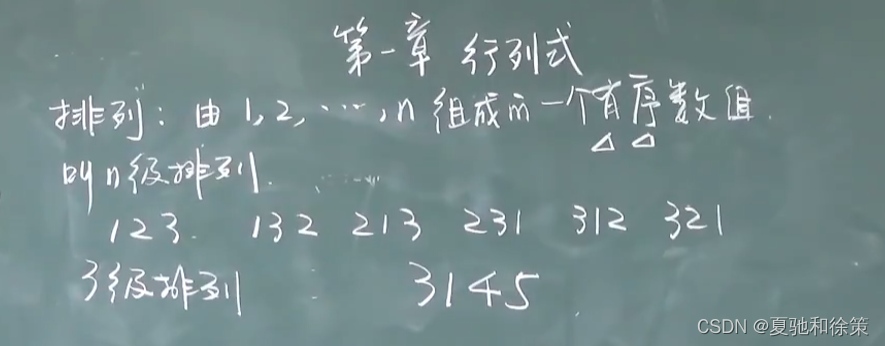 第一章 行列式
排列: 由 1,2,…,n 组成的一个有序数组.
叫n级排列.
123. 132 213 231 312 321
3级排列 3145
CSDN @夏驰和徐策